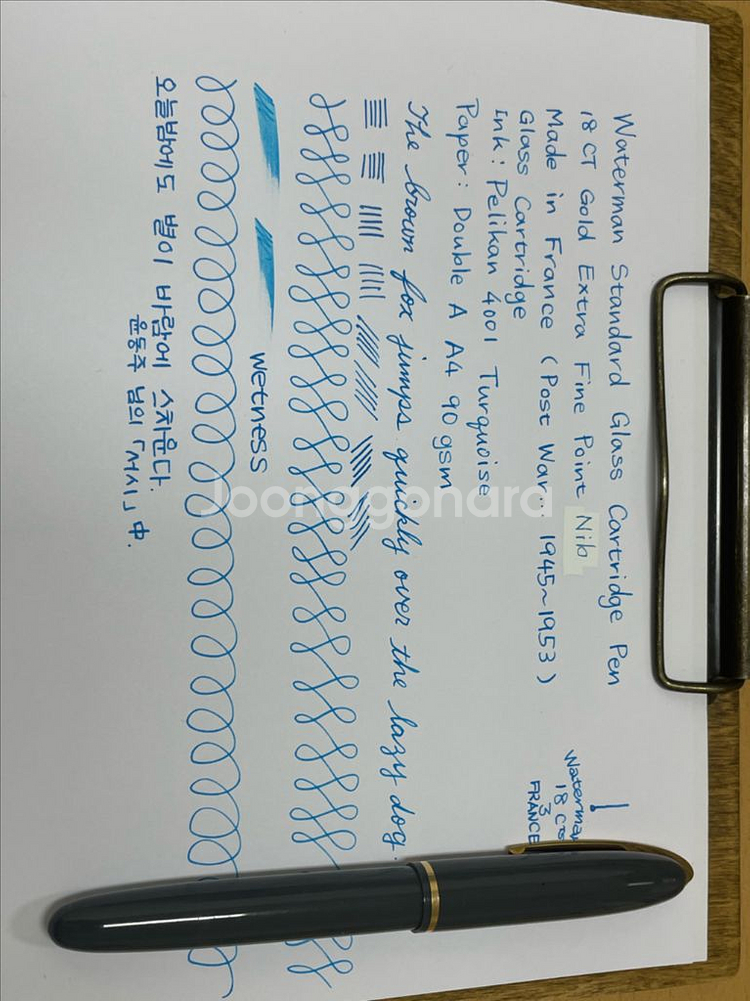 Waterman Standard Glass Cartridge Pen
18 CT Gold Extra Fine Point Nib
Made in France (Post War... 1945~1953)
Glass Cartridge
Ink: Pelikan 4001 Turquoise
Paper: Double A A4 90 gsm
Waterman
18 CT
3
FRANCE
The brown fox jumps quickly over the lazy dog.
wetness
오늘밤에도 별이 바람에 스치운다.
윤동주 님의 「서시」 中.
Joonggonara